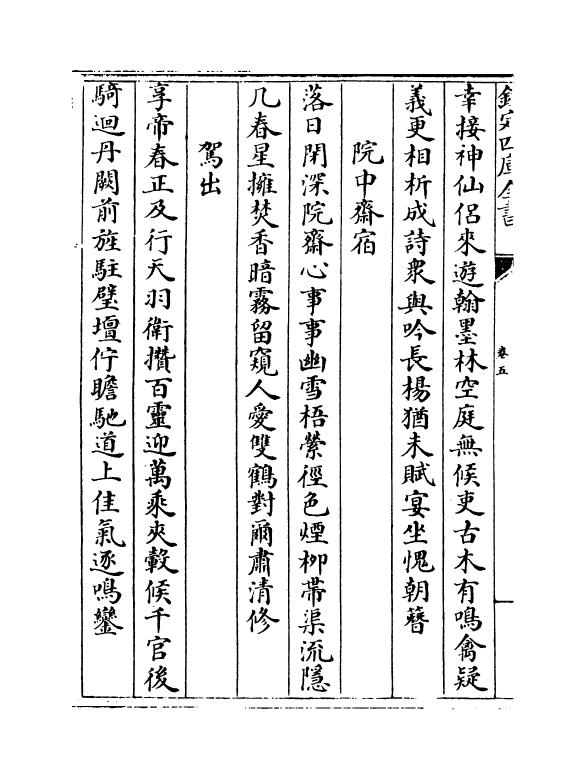 欽定四庫全書
卷五
幸接神仙侣來遊翰墨林空庭無候吏古木有鳴禽疑
義更相析成詩衆與吟長楊猶未賦宴坐愧朝簪
院中齋宿
落日閉深院齋心事事幽雪梧縈徑色煙柳帶渠流隱
几春星擁焚香暗霧留窺人愛雙鶴對爾肅清修
駕出
享帝春正及行天羽衛攢百靈迎萬乘夾轂候千官後
騎迴丹闕前旌駐璧壇佇瞻馳道上佳氣逐鳴鑾